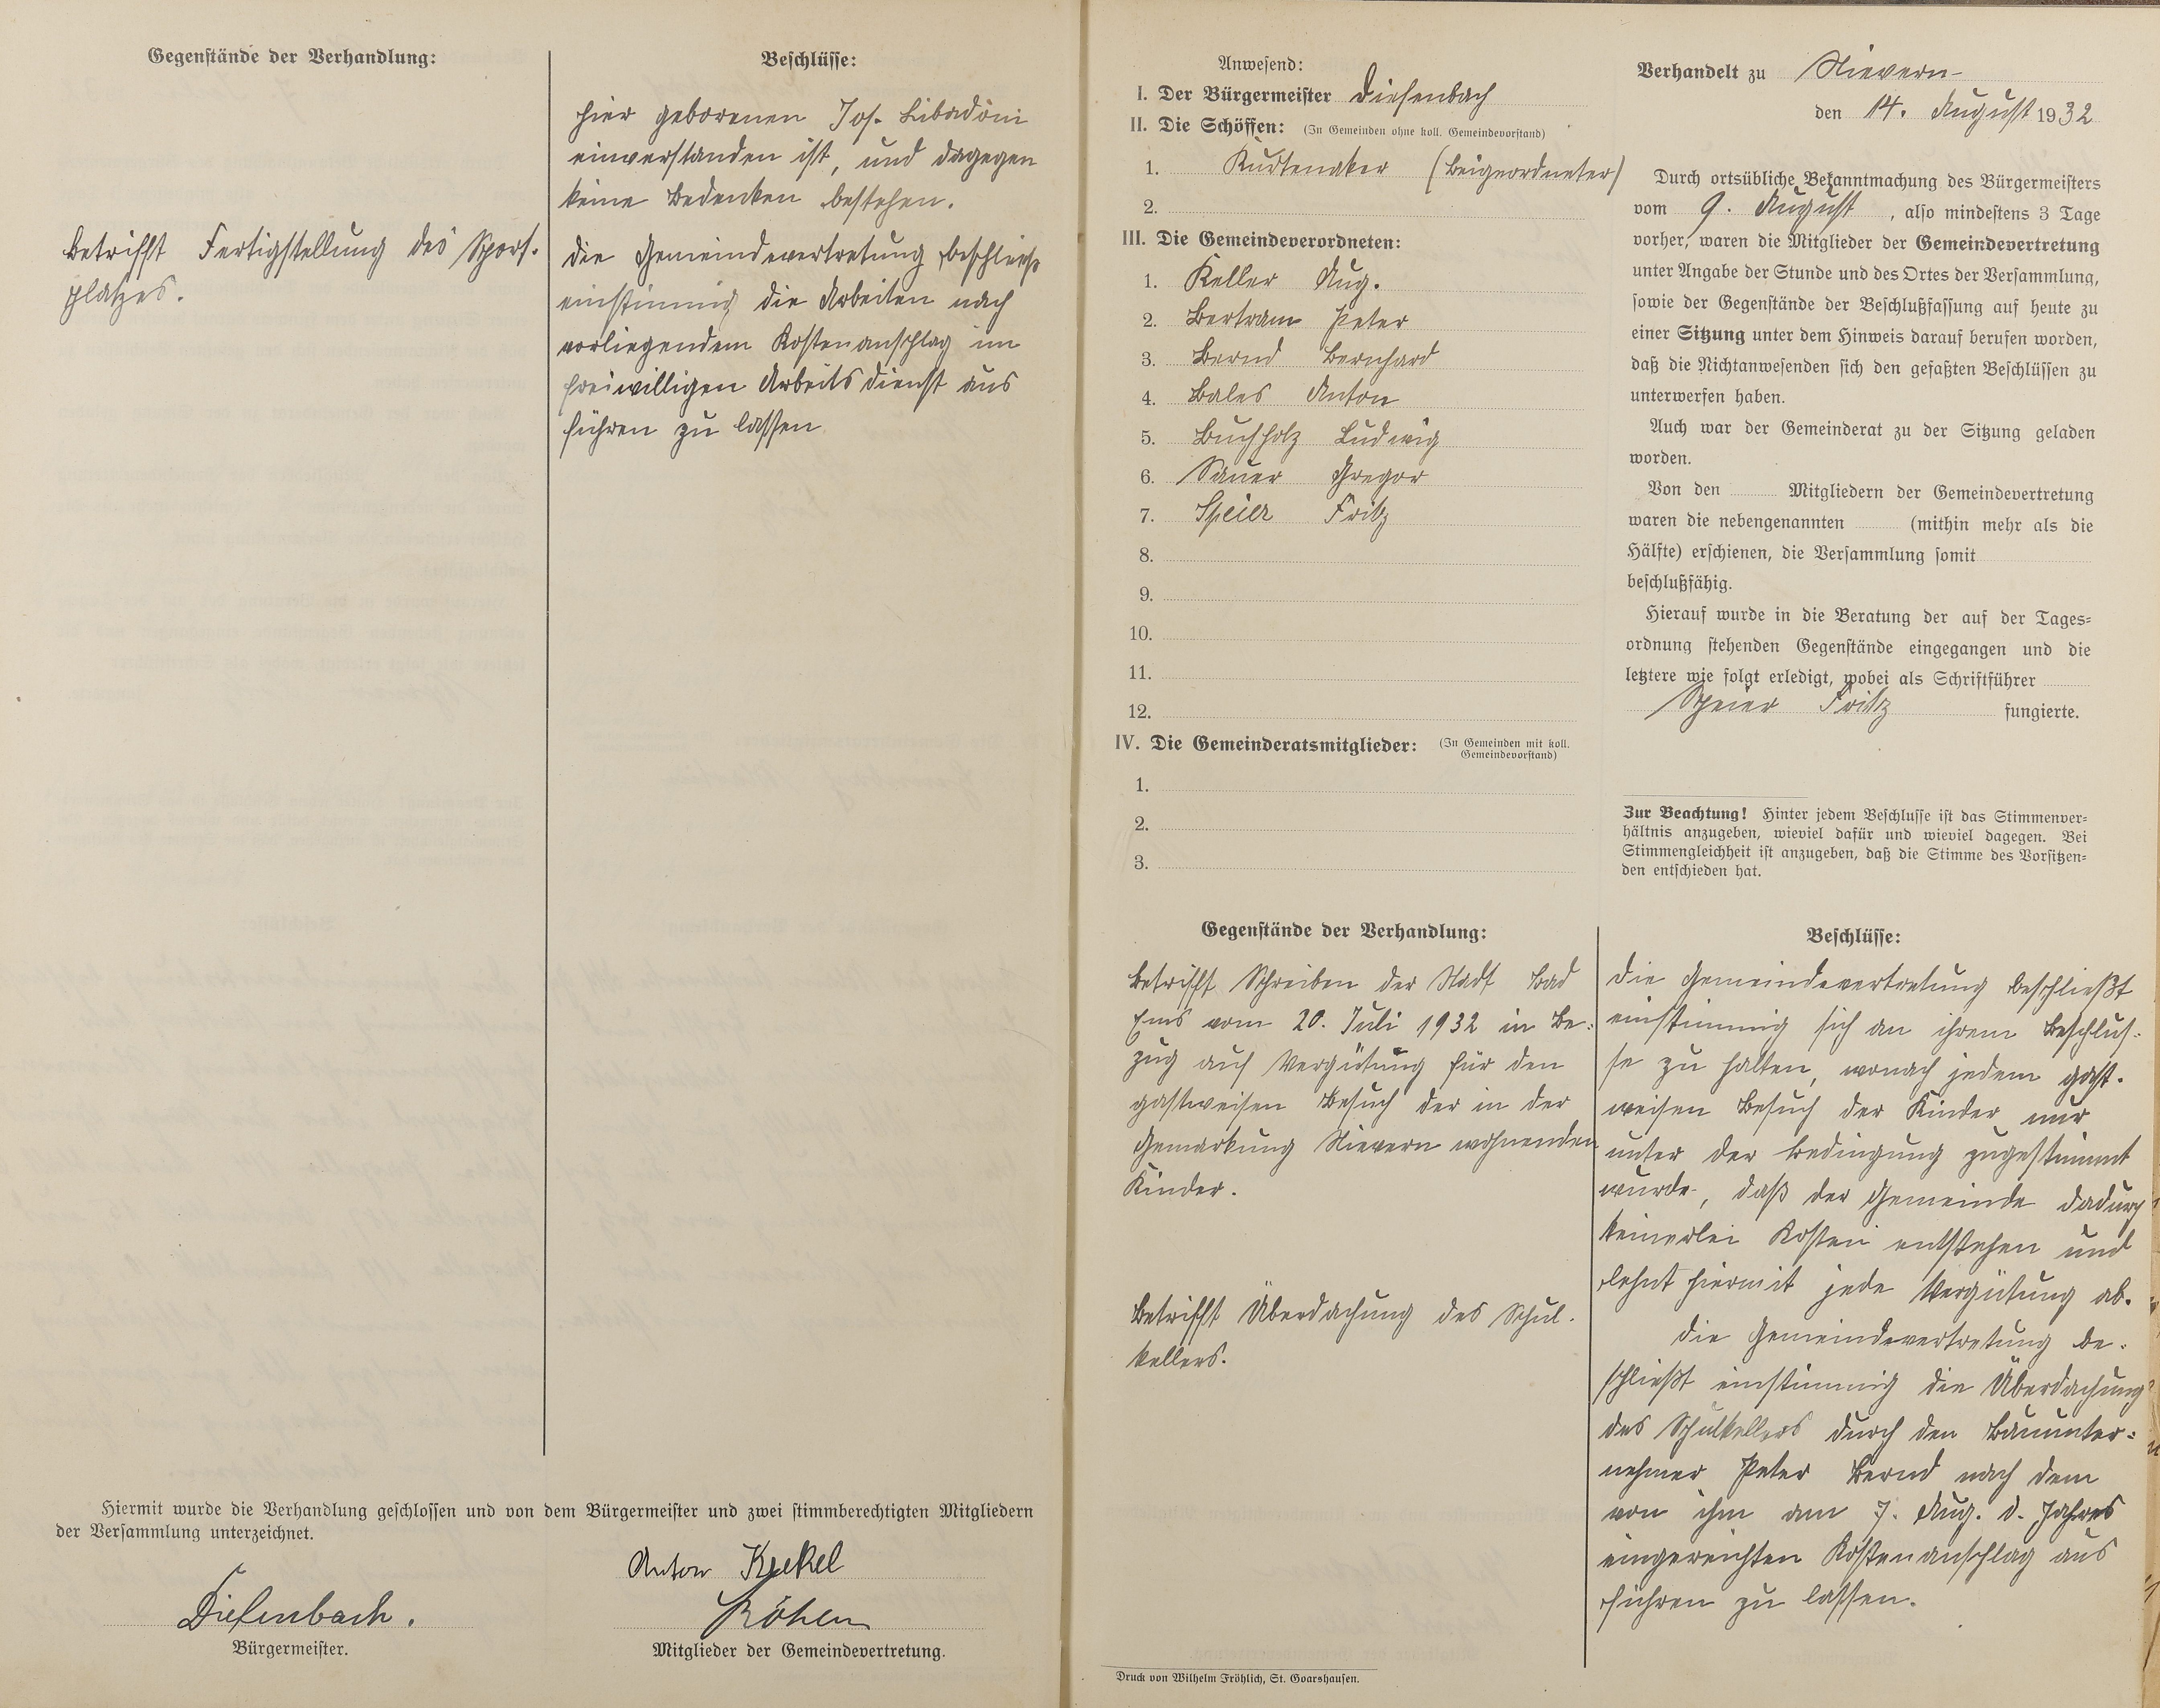 Gegenstände der Verhandlung:
Beschlüsse:
hier geborenen Jos. Libadoni
einverstanden ist, und dagegen
keine Bedenken bestehen.
Betrifft Fertigstellung des Sport-
platzes.
Die Gemeindevertretung beschließt
einstimmig die Arbeiten nach
vorliegendem Kostenanschlag im
freiwilligen Arbeitsdienst aus
führen zu lassen
Hiermit wurde die Verhandlung geschlossen und von dem Bürgermeister und zwei stimmberechtigten Mitgliedern
der Versammlung unterzeichnet.
Diefenbach.
Bürgermeister.
Anton
Mitglieder der Gemeindevertretung.
Anwesend:
I. Der Bürgermeister Diefenbach
II. Die Schöffen: (In Gemeinden ohne koll. Gemeindevorstand)
1. Kurtenaker (Beigeordneter)
2.
III. Die Gemeindeverordneten:
1. Keller Aug.
2. Bertram Peter
3. Bernd Bernhard
4. Bales Anton
5. Buchholz Ludwig
6. Sauer Gregor
7. Speier Fritz
8.
9.
10.
11.
12.
IV. Die Gemeinderatsmitglieder: (In Gemeinden mit koll.
Gemeindevorstand)
1.
2.
3.
Verhandelt zu Nievern
den 14. August 1932
Durch ortsübliche Bekanntmachung des Bürgermeisters
vom 9. August, also mindestens 3 Tage
vorher, waren die Mitglieder der Gemeindevertretung
unter Angabe der Stunde und des Ortes der Versammlung,
sowie der Gegenstände der Beschlußfassung auf heute zu
einer Sitzung unter dem Hinweis darauf berufen worden,
daß die Nichtanwesenden sich den gefaßten Beschlüssen zu
unterwerfen haben.
Auch war der Gemeinderat zu der Sitzung geladen
worden.
Von den Mitgliedern der Gemeindevertretung
waren die nebengenannten (mithin mehr als die
Hälfte) erschienen, die Versammlung somit
beschlußfähig.
Hierauf wurde in die Beratung der auf der Tages-
ordnung stehenden Gegenstände eingegangen und die
letztere wie folgt erledigt, wobei als Schriftführer
Speier Fritz fungierte.
Zur Beachtung! Hinter jedem Beschlusse ist das Stimmenver-
hältnis anzugeben, wieviel dafür und wieviel dagegen. Bei
Stimmengleichheit ist anzugeben, daß die Stimme des Vorsitzen-
den entschieden hat.
Gegenstände der Verhandlung:
Betrifft Schreiben der Stadt Bad
Ems vom 20. Juli 1932 in Be-
zug auf Vergütung für den
gastweisen Besuch der in der
Gemarkung Nievern wohnenden
Kinder.
Betrifft Überdachung des Schul-
kellers.
Beschlüsse:
Die Gemeindevertretung beschließt
einstimmig sich an ihrem Beschlus-
se zu halten, wonach jedem gast-
weisen Besuch der Kinder nur
unter der Bedingung zugestimmt
wurde, daß der Gemeinde dadurch
keinerlei Kosten entstehen und
lehnt hiermit jede Vergütung ab.
Die Gemeindevertretung be-
schließt einstimmig die Überdachung
des Schulkellers durch den Bauunter-
nehmer Peter Bernd nach dem
von ihm am 7. Aug. d. Jahres
eingereichten Kostenanschlag aus
führen zu lassen.
Druck von Wilhelm Fröhlich, St. Goarshausen.